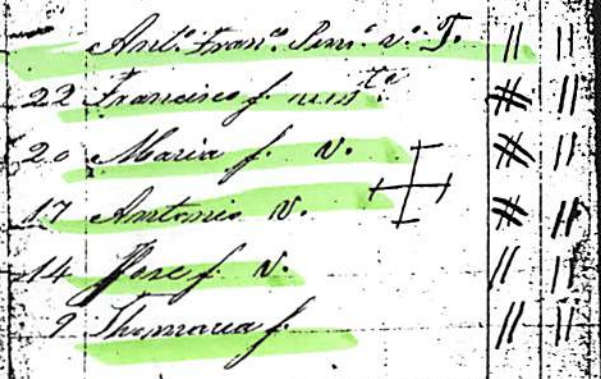 Ant.º Fran.co
22 Francisco f.
20 Maria f. v.
17 Antonio v.
14 Jose f. v.
9 Thomazia f.